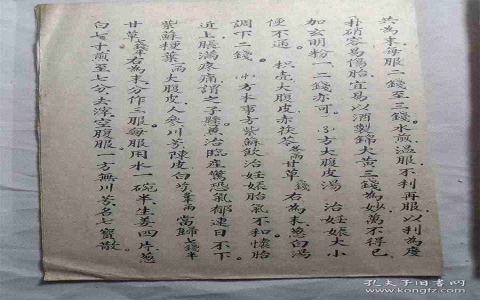 共為末每服二錢至三錢水煎温服不利再服以利為度
朴硝容易傷胎宜易以酒製錦大黄三錢為妙萬不得已
加玄明粉一二錢亦可 31方大腹皮湯 治妊娠大小
便不通 枳壳大腹皮赤茯苓各一兩甘草 錢 右為末葱白湯
調下二錢 方本事方紫蘇飲治妊娠胎氣不和懷胎
近上脹滿疼痛謂之子縣兼治臨産驚恐氣郁連日不下
紫蘇種葉一兩大腹皮人参川芎陳皮白芍各半兩當歸七錢半
甘草 錢半右為末分作三服每服用水一碗半生姜四片葱
白七寸煎至七分去滓空腹服一方無川芎名七寳散
孔夫子旧书网
www.kongfz.com